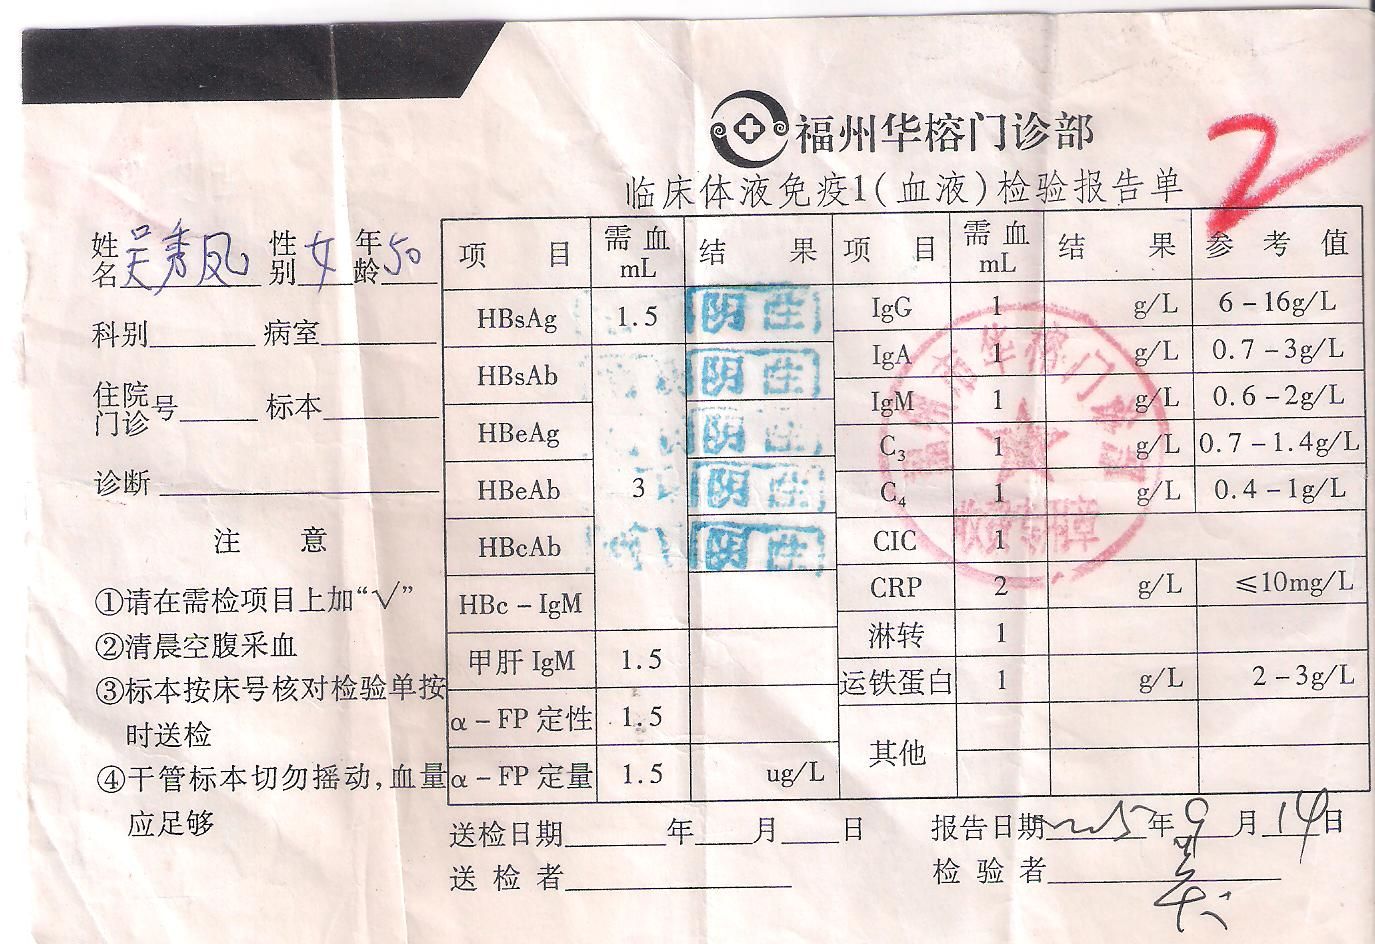 福州华榕门诊部
2
临床体液免疫1(血液)检验报告单
姓名 吴秀凤 性别 女 年龄 50
科别 病室
住院门诊号 标本
诊断
注 意
①请在需检项目上加“√”
②清晨空腹采血
③标本按床号核对检验单按
时送检
④干管标本切勿摇动,血量
应足够
项 目 需血mL 结 果 项 目 需血mL 结 果 参 考 值
HBsAg 1.5 阴性 IgG 1 g/L 6-16g/L
HBsAb 阴性 IgA 1 g/L 0.7-3g/L
HBeAg 阴性 IgM 1 g/L 0.6-2g/L
HBeAb 3 阴性 C3 1 g/L 0.7-1.4g/L
HBcAb 阴性 C4 1 g/L 0.4-1g/L
HBc-IgM CIC 1
甲肝IgM 1.5 CRP 2 g/L ≤10mg/L
α-FP定性 1.5 淋转 1
α-FP定量 1.5 ug/L 运铁蛋白 1 g/L 2-3g/L
其他
福州市华榕门诊部
收费专用章
送检日期 年 月 日 报告日期 2005年9月14日
送 检 者 检 验 者